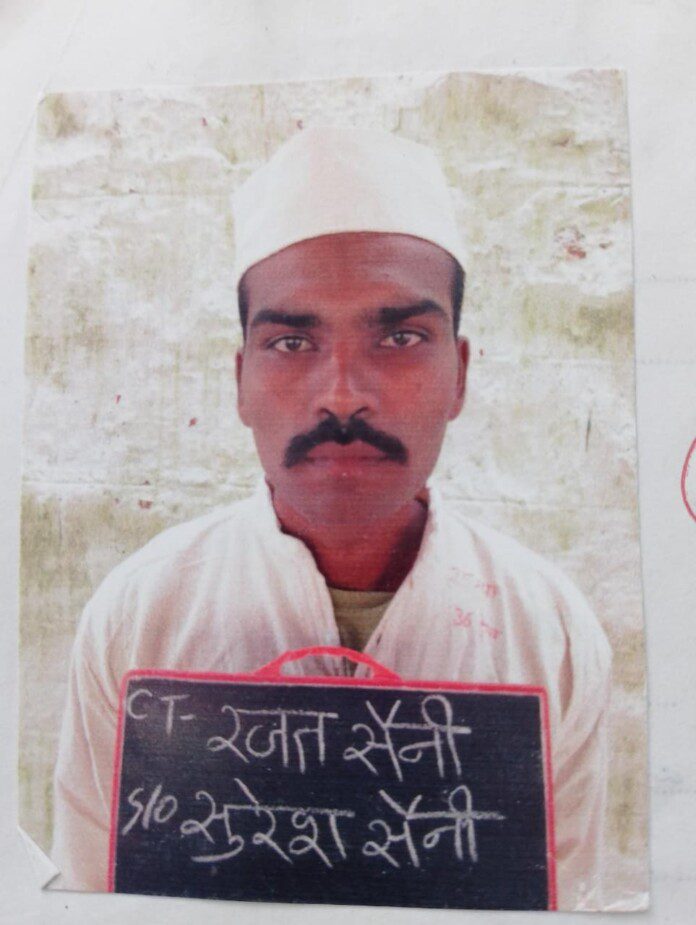 CT- रजत सैनी
S/O सुरेश सैनी